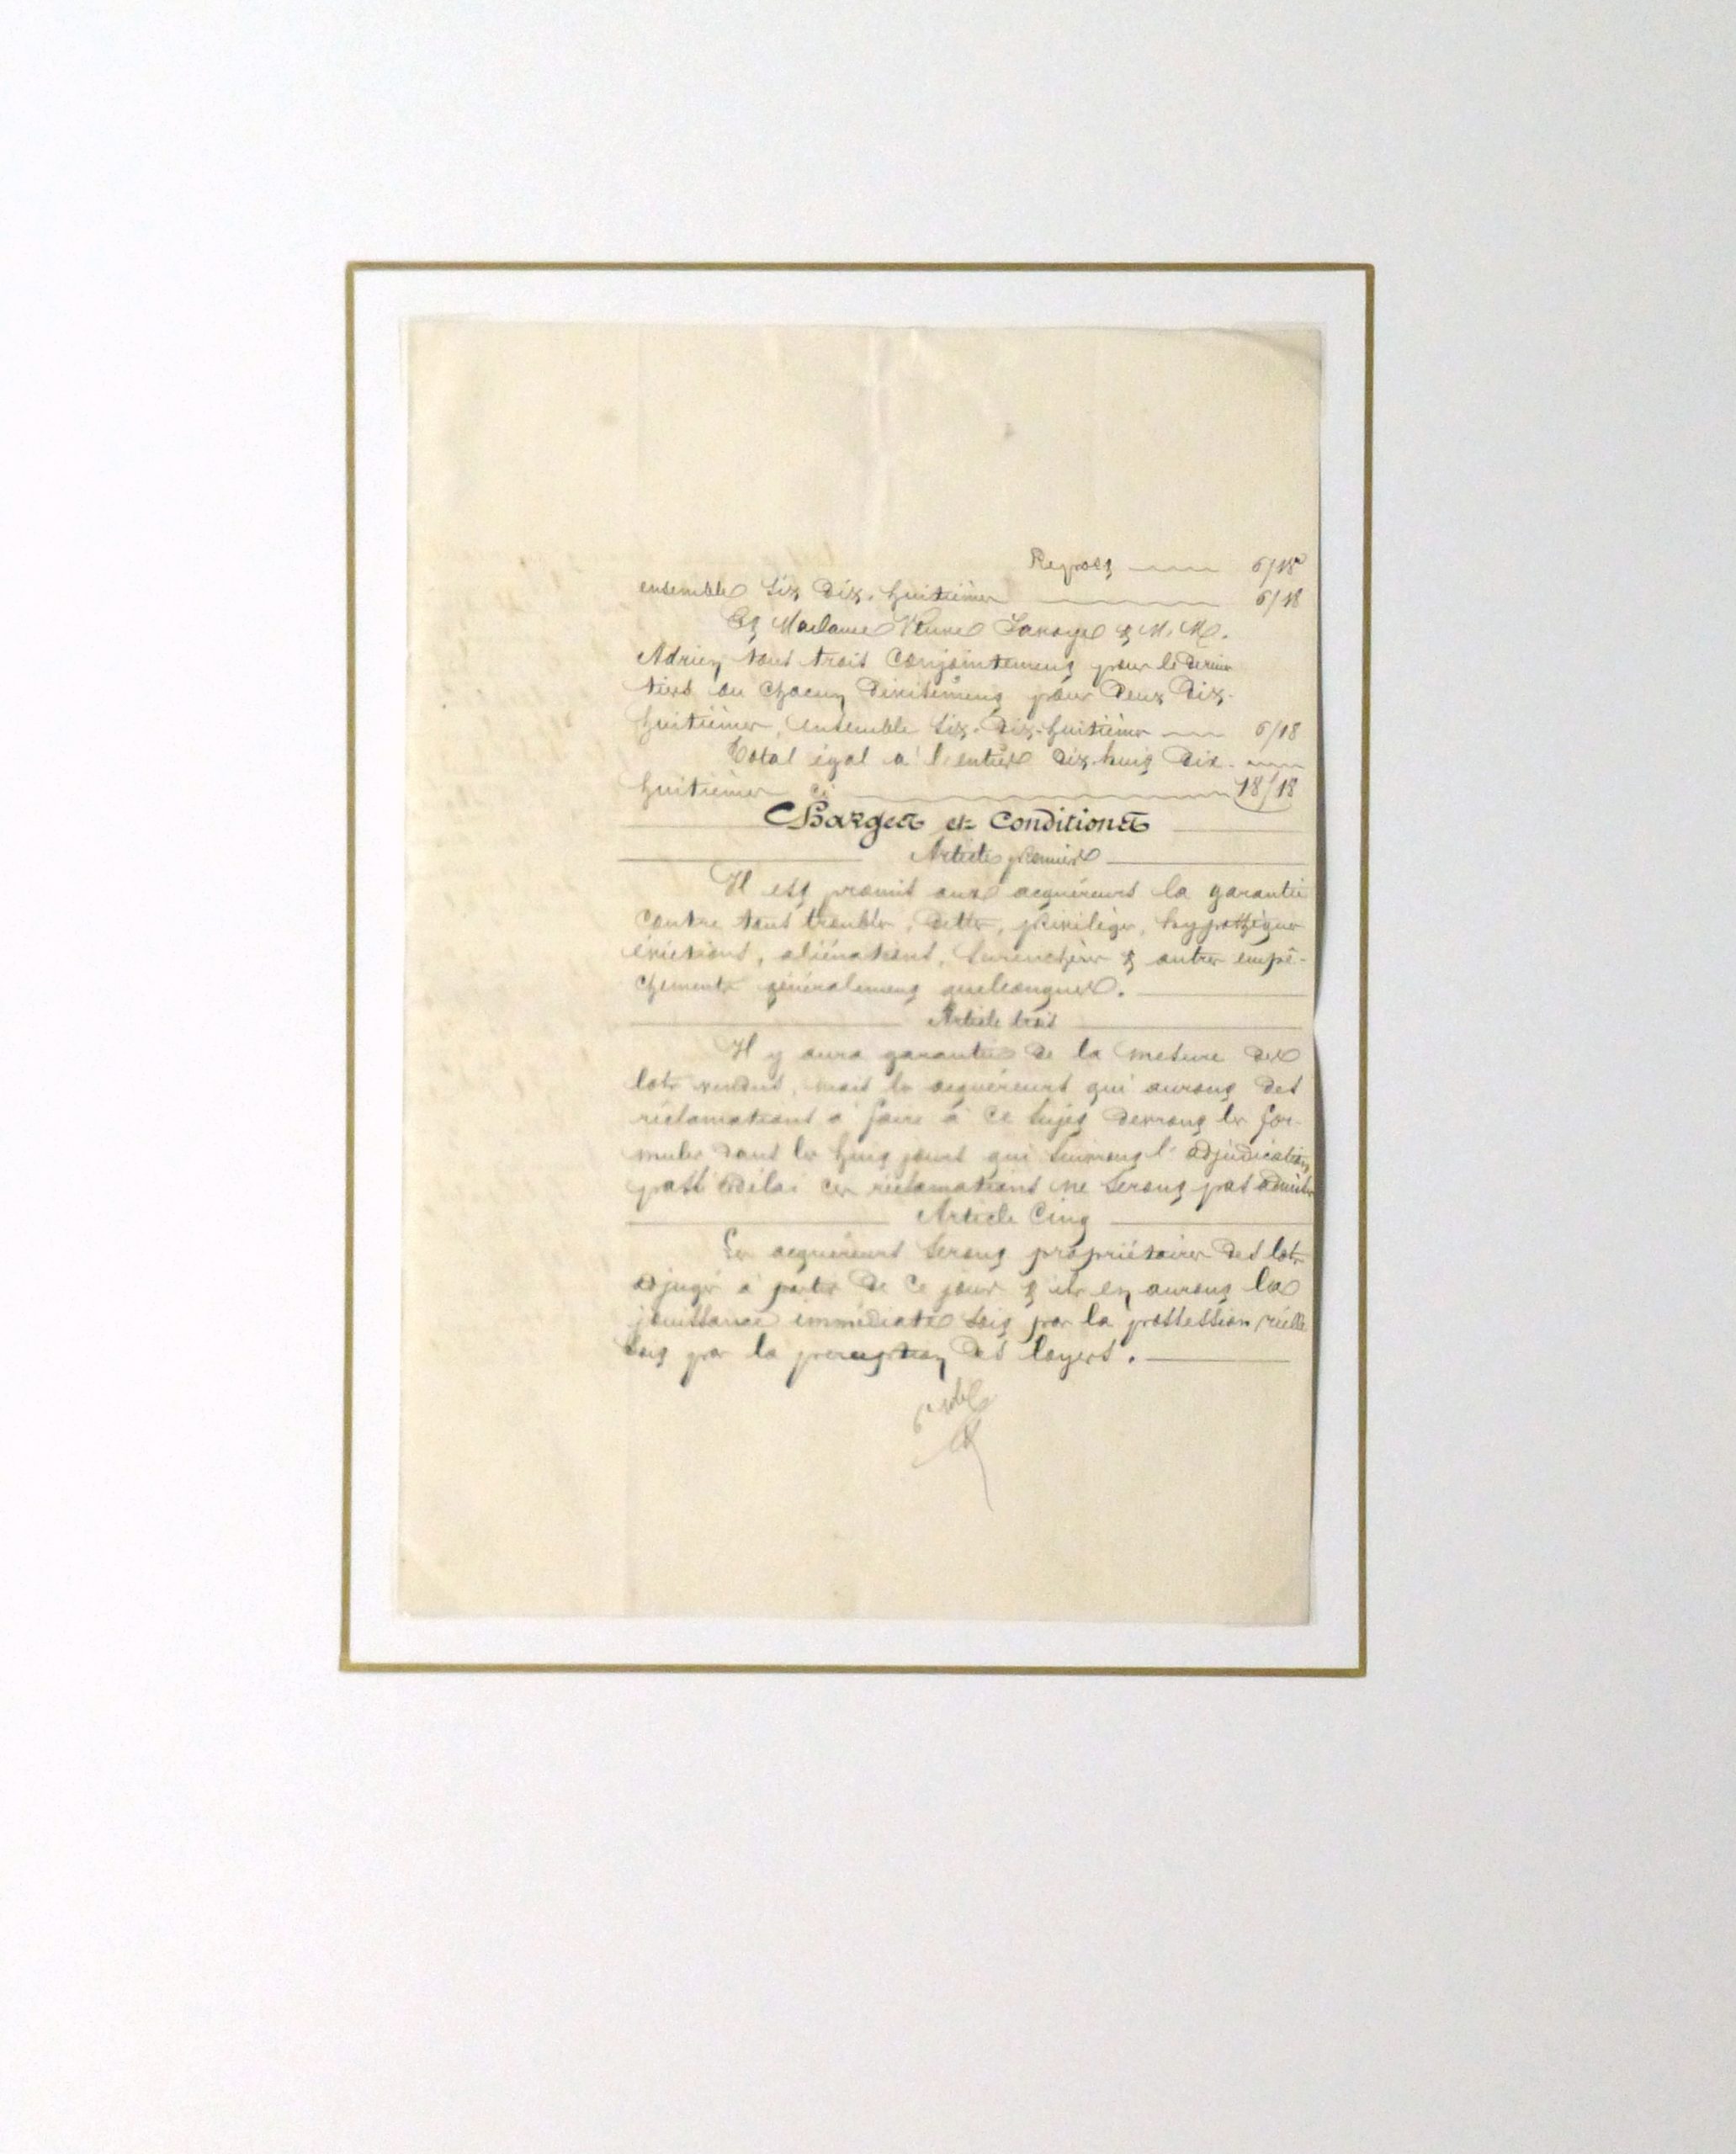 Report 6/18e
ensemble six dix-huitièmes 6/18
Et Madame Veuve Lanoye & M. M.
Adrien tous trois conjointement pour le dernier
tiers ou chacun divisément pour deux dix-
huitièmes, ensemble six-dix-huitièmes 6/18
Total égal à l'entier dix-huit dix-
huitièmes ci 18/18
Charges et Conditions
Article premier
Il est promis aux acquéreurs la garantie
contre tous troubles, dettes, privilèges, hypothèques
évictions, aliénations, surenchères & autres empê-
chements généralement quelconques.
Article trois
Il y aura garantie de la mesure des
lots vendus, mais les acquéreurs qui auront des
réclamations à faire à ce sujet devront les for-
muler dans les huit jours qui suivront l'adjudication,
passé délai ces réclamations ne seront pas admises
Article Cinq
Les acquéreurs seront propriétaires des lots
adjugés à partir de ce jour & ils en auront la
jouissance immédiate soit par la possession réelle
soit par la perception des loyers.